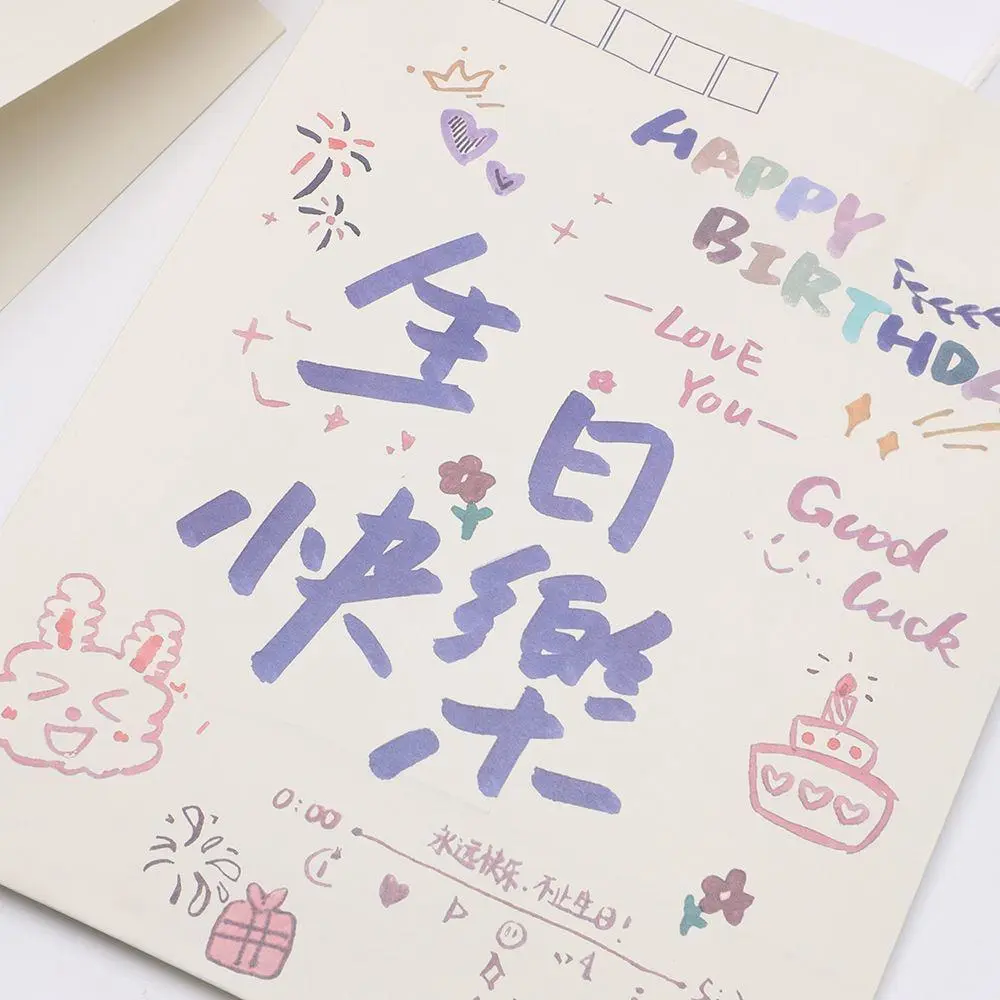 HAPPY
BIRTHDA
生日
快樂
—LOVE
YOU—
Good
luck
0:00
永远快乐，不止生日！